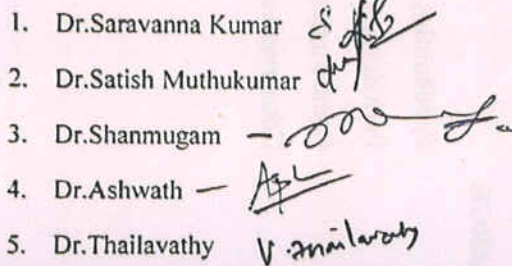 1. Dr.Saravanna Kumar
2. Dr.Satish Muthukumar
3. Dr.Shanmugam –
4. Dr.Ashwath –
5. Dr.Thailavathy V.